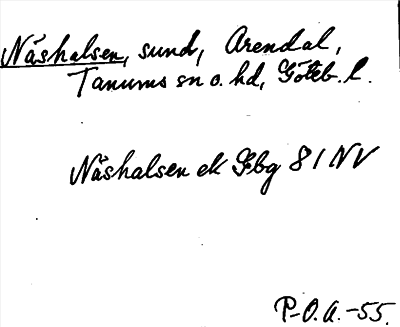 Nåshalsen, sund, Arendal,
Tanums sn o. hd, Göteb. l.
Nåshalsen ek Gbg 81 NV
P-O.A.-55.